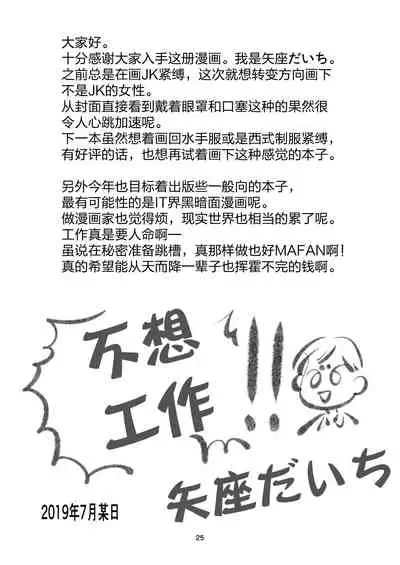 大家好。
十分感谢大家入手这册漫画。我是矢座だいち。
之前总是在画JK紧缚，这次就想转变方向画下
不是JK的女性。
从封面直接看到戴着眼罩和口塞这种的果然很
令人心跳加速呢。
下一本虽然想着画回水手服或是西式制服紧缚，
有好评的话，也想再试着画下这种感觉的本子。
另外今年也目标着出版些一般向的本子，
最有可能性的是IT界黑暗面漫画呢。
做漫画家也觉得烦，现实世界也相当的累了呢。
工作真是要人命啊—
虽说在秘密准备跳槽，真那样做也好MAFAN啊！
真的希望能从天而降一辈子也挥霍不完的钱啊。
不想
工作!!
矢座だいち
2019年7月某日
25